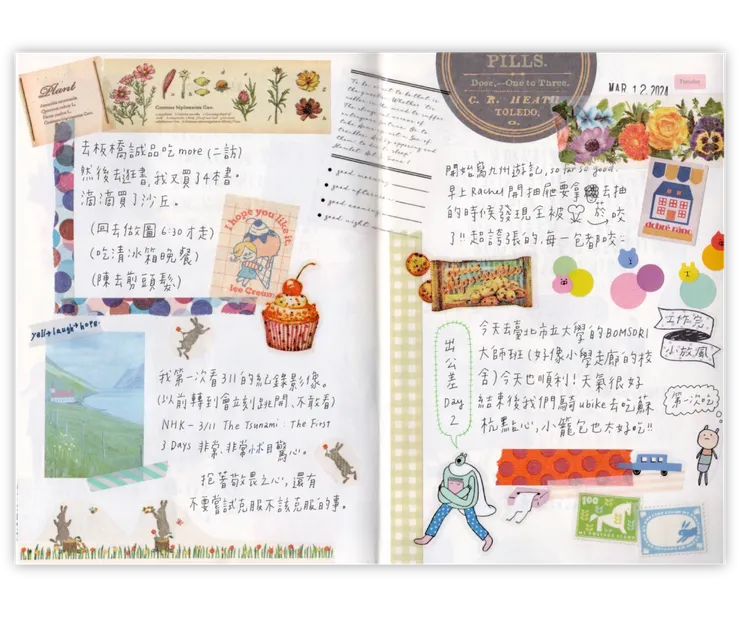 Plant
Cosmos bipinnatus Cav.
去板橋誠品吃more(二訪)
然後去逛書,我又買了4本書。
滴滴買了沙丘。
(回去做圖 6:30才走)
(吃清冰箱晚餐)
(陳去剪頭髮)
I hope you like it.
Ice Cream
yell+laugh+hope.
我第一次看311的紀錄影像。
(以前轉到會立刻跳開、不敢看)
NHK - 3/11 The Tsunami: The First
3 Days 非常、非常怵目驚心。
抱著敬畏之心,還有
不要嘗試克服不該克服的事。
• good morning
• good afternoon
• good evening
• good night
PILLS.
Dose,—One to Three.
C. R. HEATH
TOLEDO,
O.
MAR 12.2024
Tuesday
開始寫九州遊記, so far so good.
早上Rachel開抽屜要拿去抽
的時候發現全被咬
了!!超誇張的,每一包都咬
出公差
Day
2
今天去臺北市立大學的BOMSORI
大師班(好像小學走廊的校
舍)今天也順利!天氣很好
結束後我們騎ubike去吃蘇
杭點心,小籠包也太好吃!!
工作完
小放風
第一次吃
100